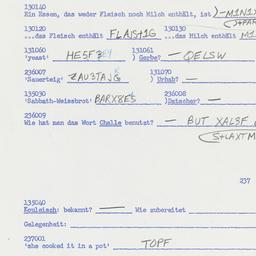 130140
Ein Essen, das weder Fleisch noch Milch enthält, ist
130120 130130
...das Fleisch enthält FLAISH1G ...das Milch enthält
131060 131061
'yeast' HE5F ) Gerbe? — OELSW
236007 131070
'Sauerteig' ZAU3TAJG ) Urhab? —
135030 236008
'Sabbath-Weissbrot' BARX8ES )Datscher? —
236009
Wie hat man das Wort Challe benutzt? — BUT XAL3F
237
135040
Kouleisch: bekannt? — Wie zubereitet
Gelegenheit:
237001
'she cooked it in a pot' TOPF